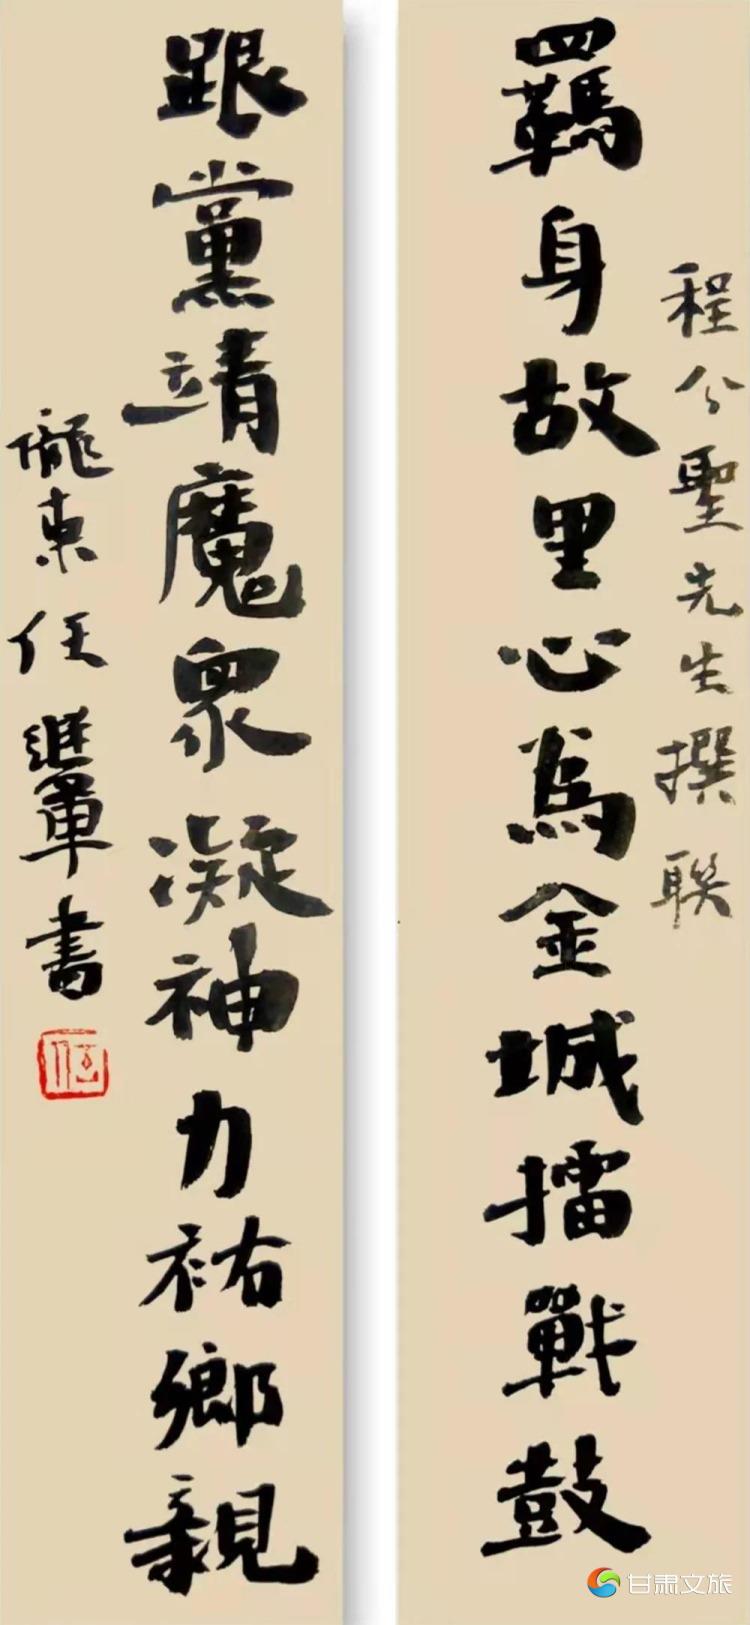 程兮聖先生撰联
羈身故里心為金城擂戰鼓
跟黨靖魔眾凝神力祐鄉親
隴東任書
任
甘肃文旅